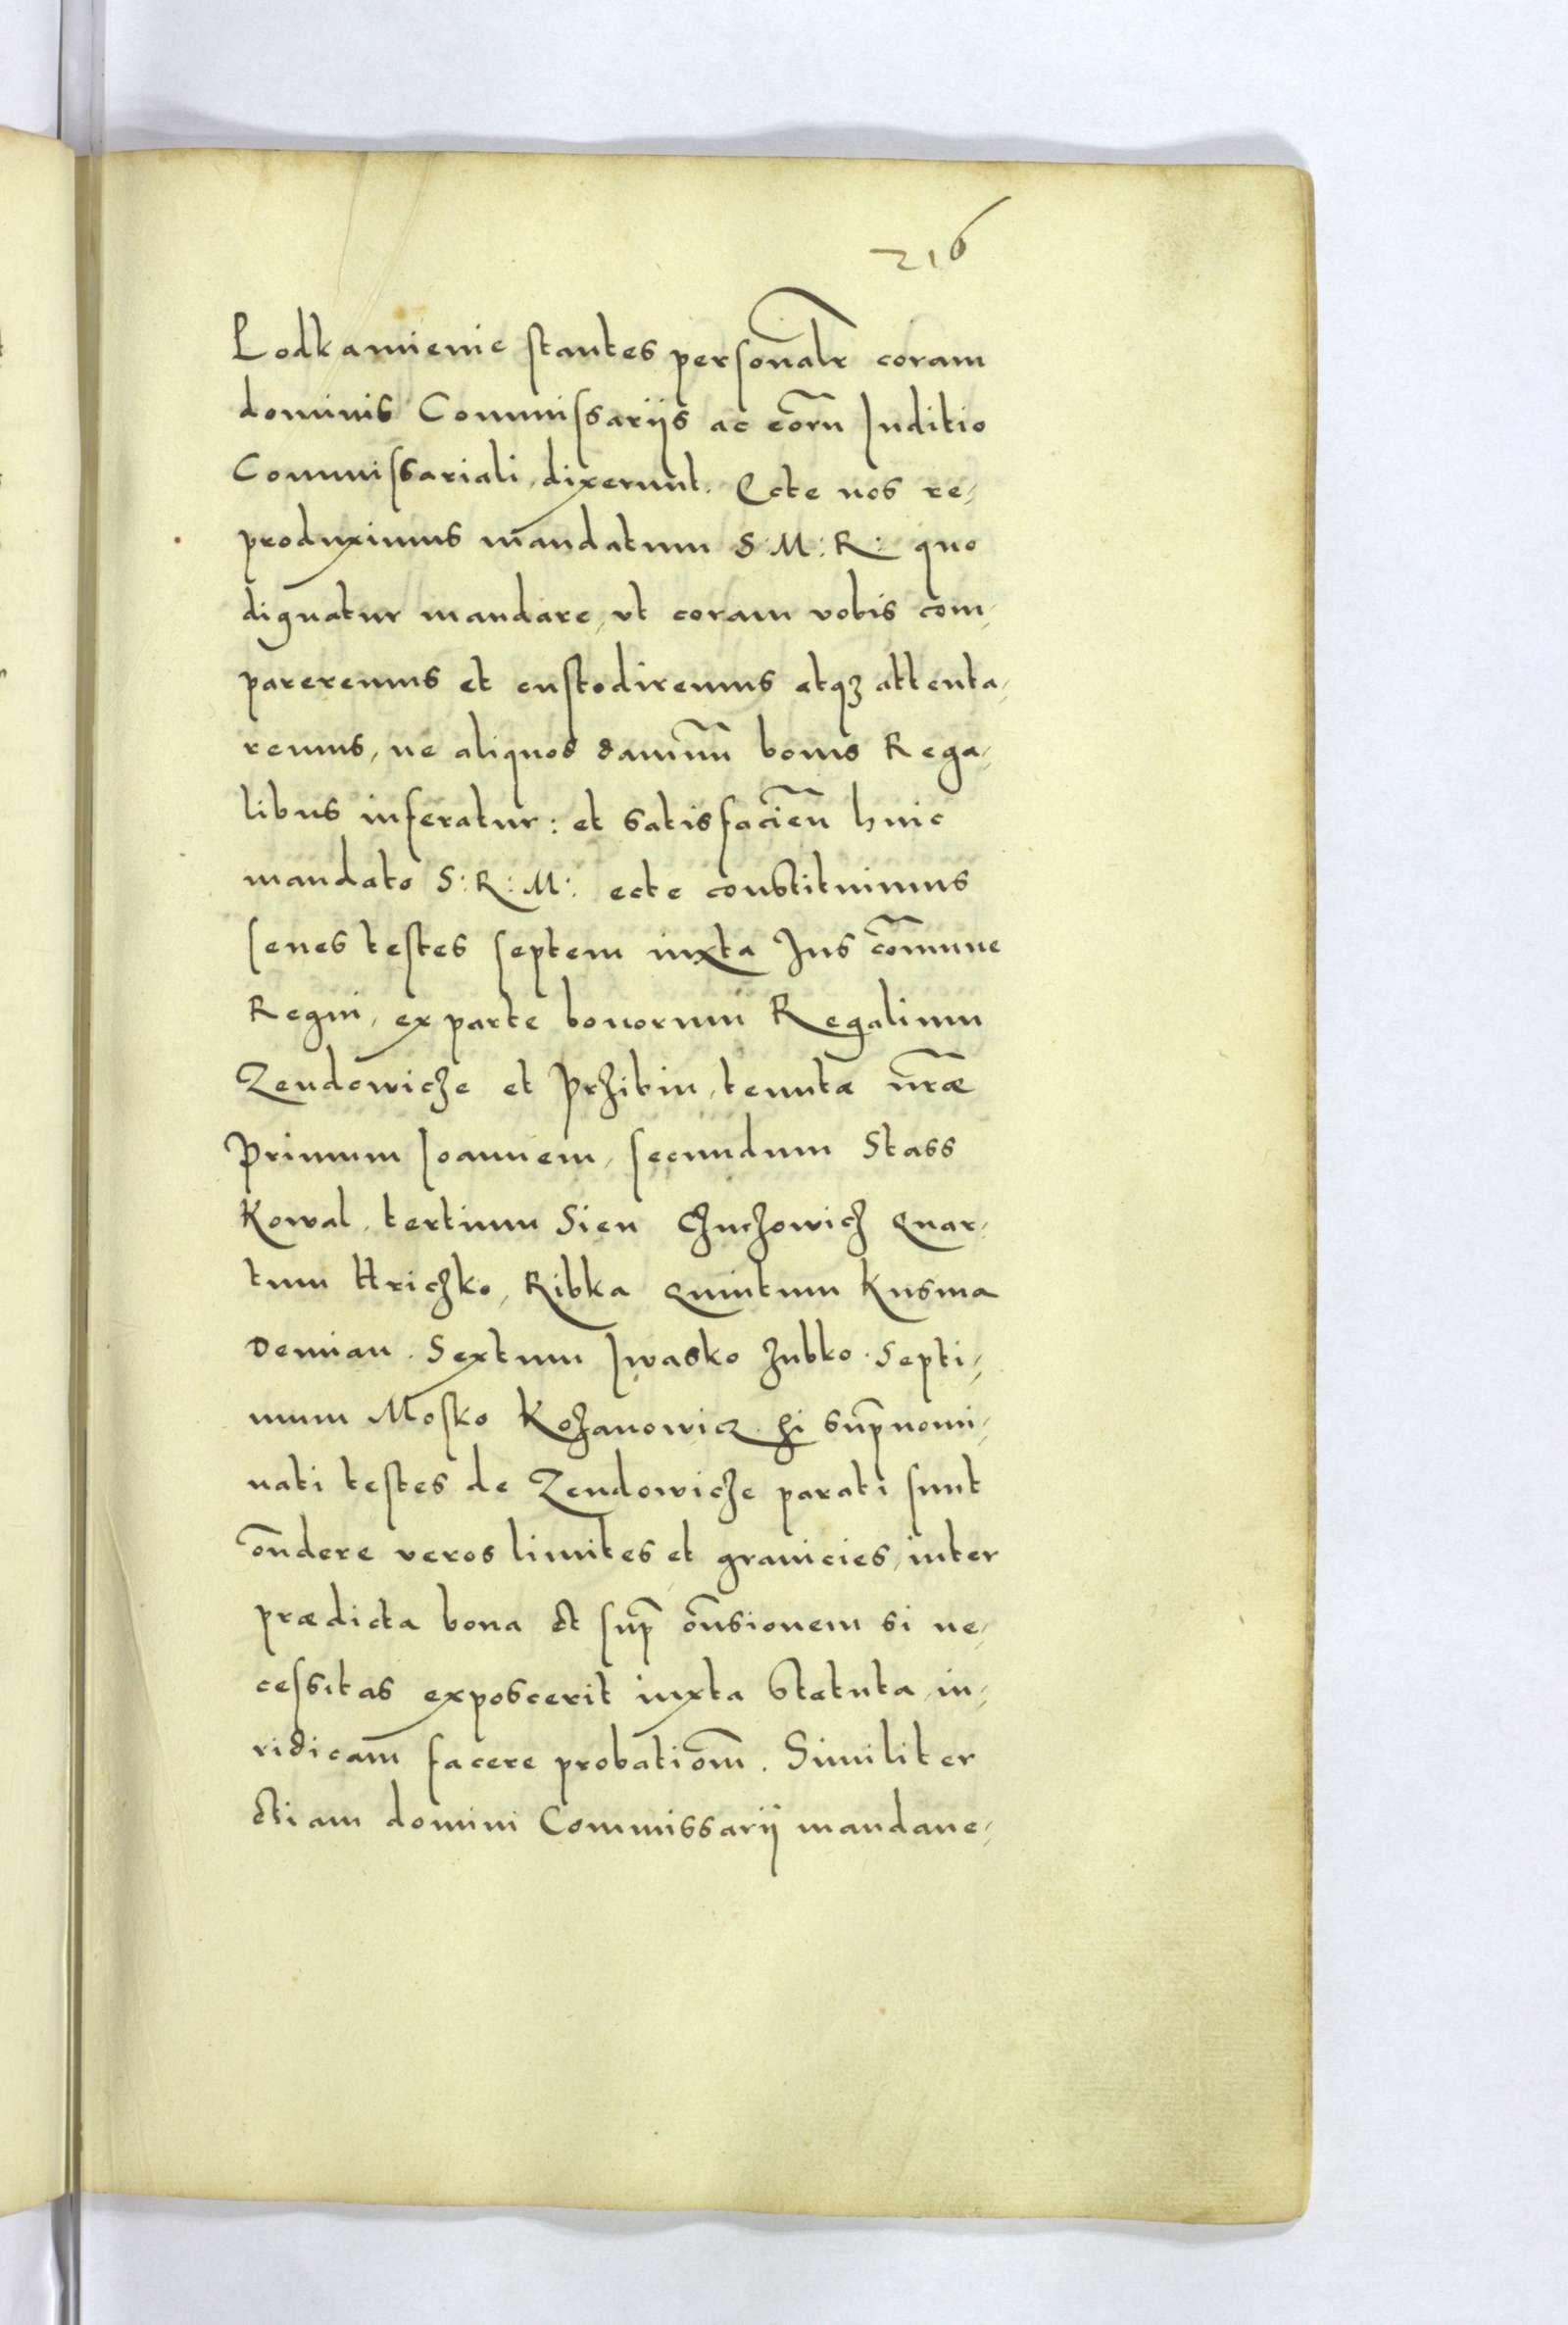 216
Podkamienie stantes personalr coram
dominis Commissariis ac eorū Iuditio
Commissariali, dixerunt. Ecce nos re-
produximus mandatum S: M: R: quo
dignatur mandare, vt coram vobis com-
pareremus et custodiremus atq3 attenta-
remus, ne aliquod damnū bonis Rega-
libus inferatur: et satisfacien̄ huic
mandato S: R: M: ecce constituimus
senes testes septem iuxta Ius com̄une
Regni, ex parte bonorum Regalium
Zendowicze et Przibin, tenutæ nr̄æ
Primum Ioannem, secundum Stass
Kowal, tertium Sien Chuchowich Quar-
tum Hriczko, Ribka Quintum Kusma
Demian. Sextum Iwasko Zubko. Septi-
mum Mosko Kozanowicz. Hi sup̄nomi-
nati testes de Zendowicze parati sunt
on̄dere veros limites et granicies, inter
prædicta bona et sup̄ on̄sionem si ne-
cessitas exposcerit iuxta statuta, iu-
ridicam̄ facere probatiom̄. Similiter
etiam domini Commissarij mandaue-